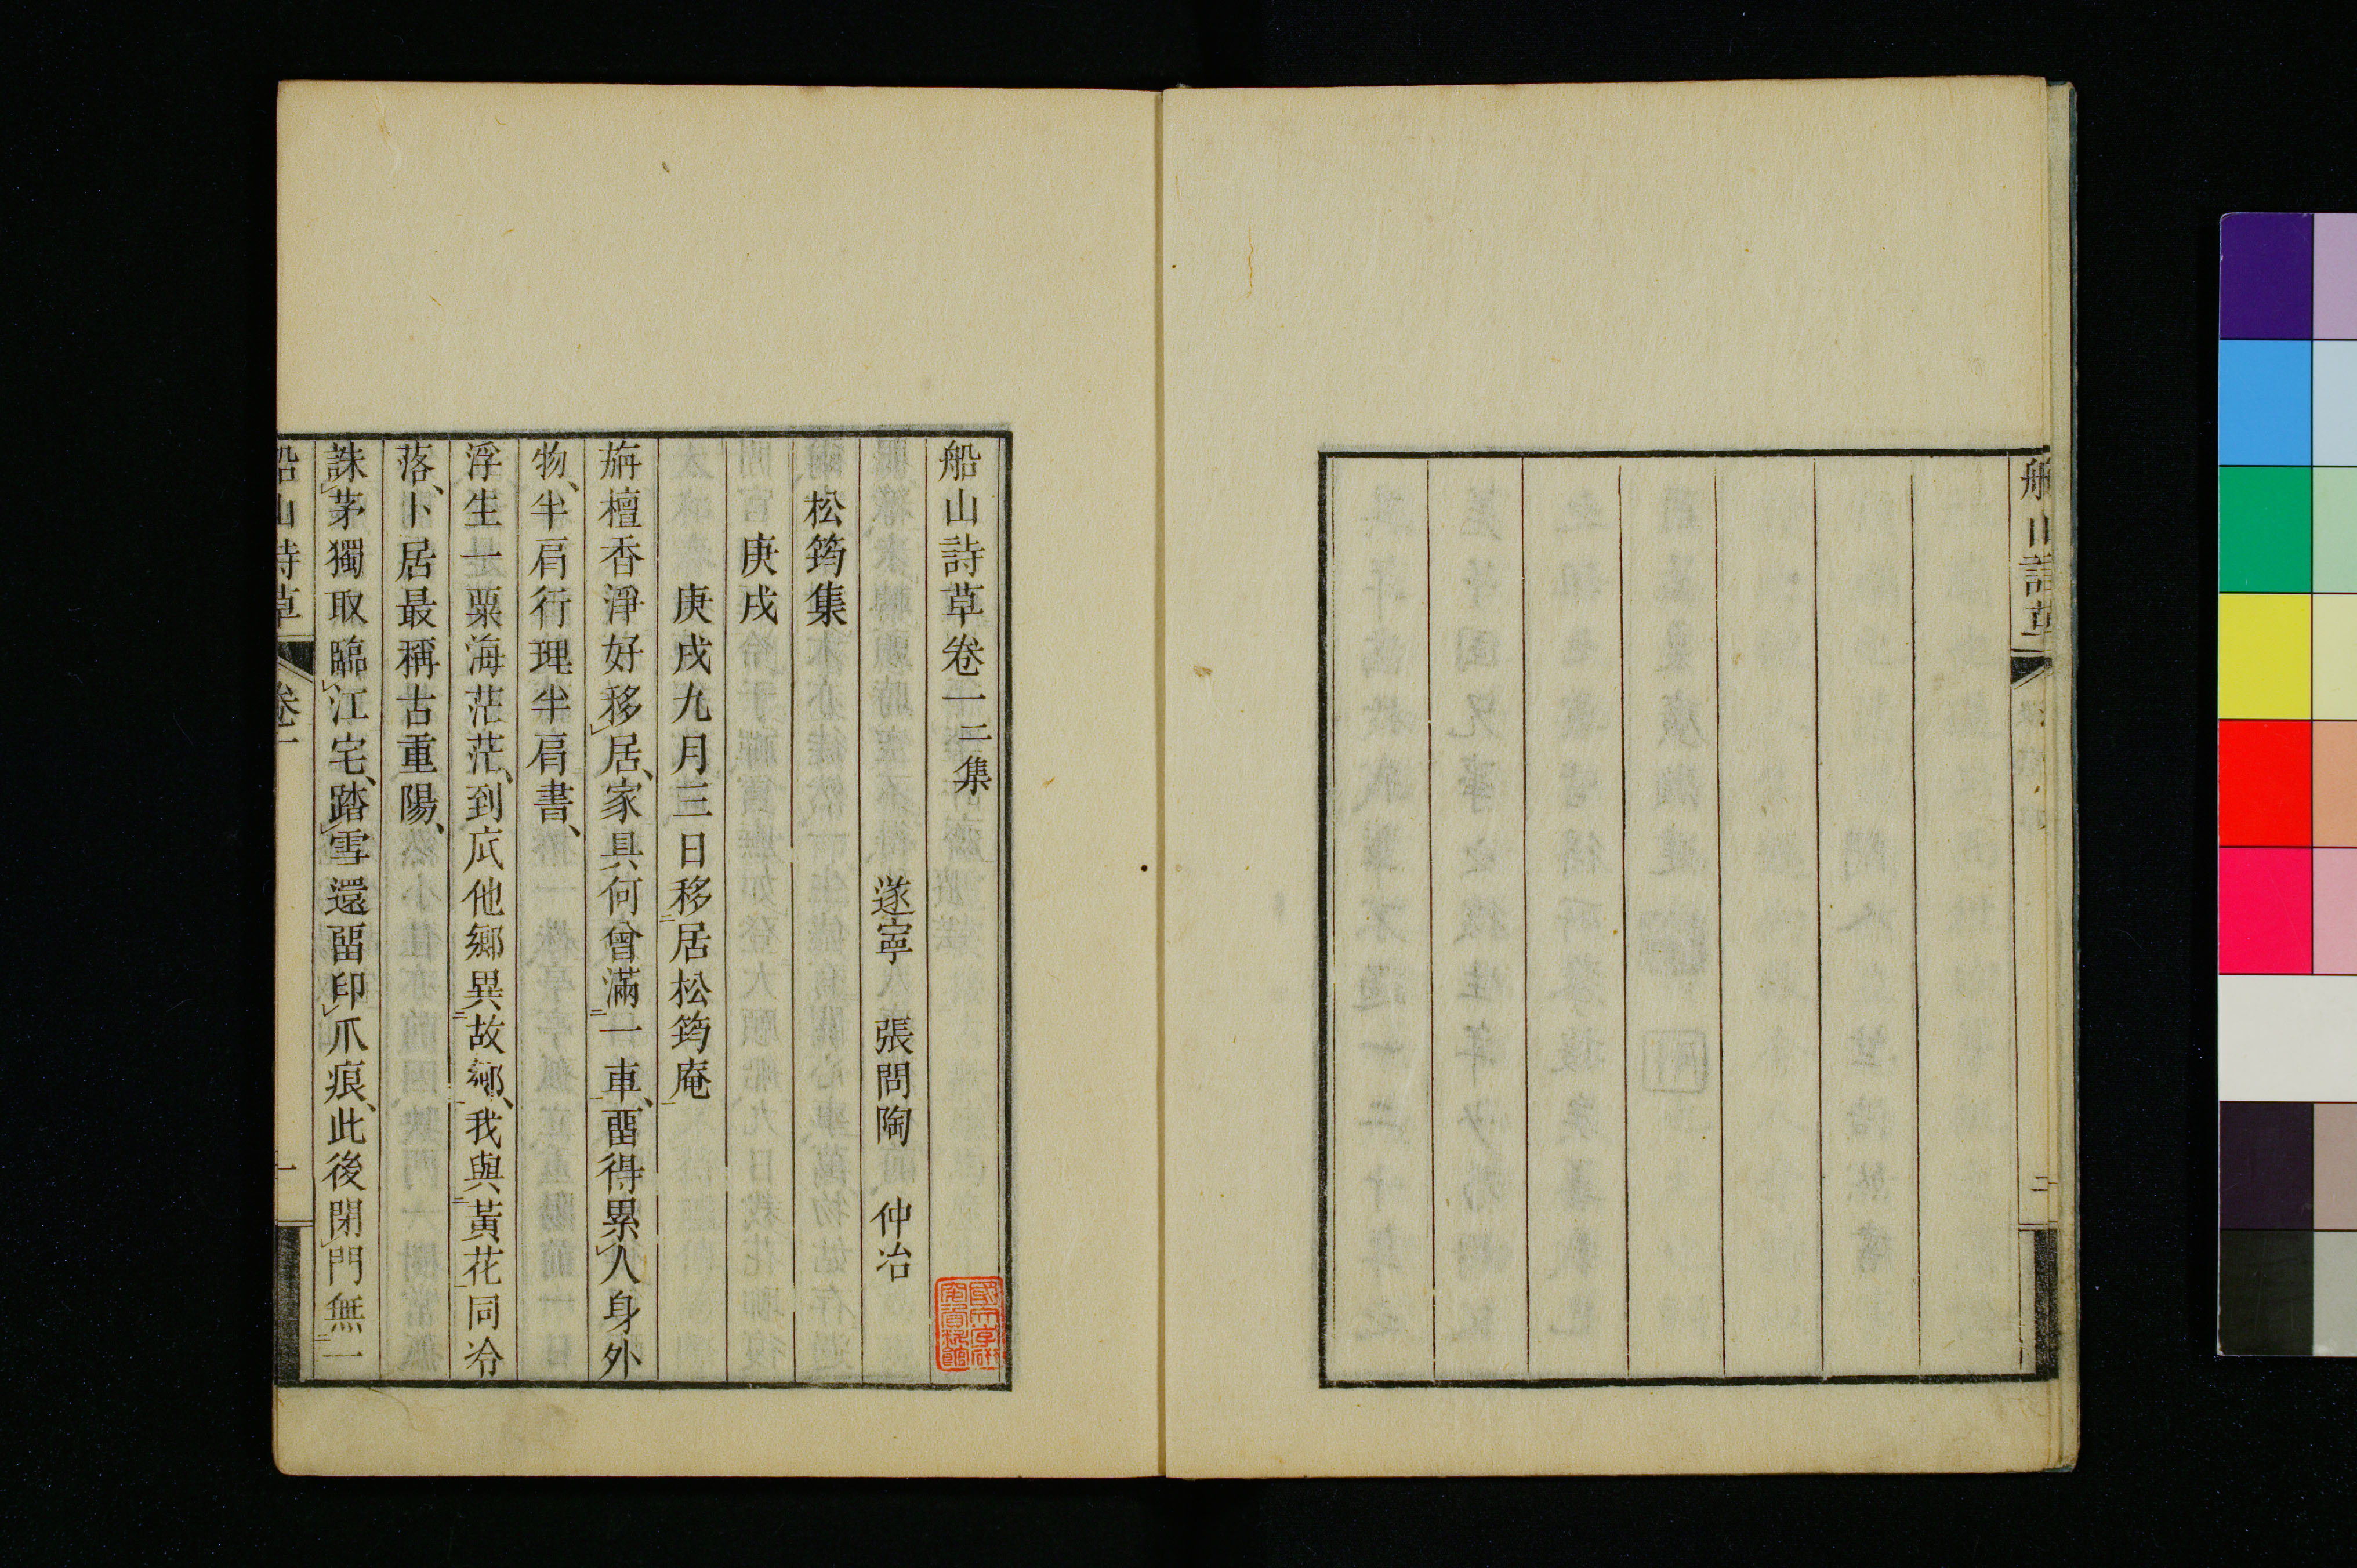 船山詩草
二
船山詩草卷一二集
遂寧 張問陶 仲冶
松筠集
庚戌
庚戌九月三日移居松筠庵
旃檀香淨好移居、家具何曾滿一車、畱得累人身外
物、半肩行理半肩書、
浮生一粟海茫茫、到底他鄉異故鄉、我與黃花同冷
落、卜居最稱古重陽、
誅茅獨取臨江宅、踏雪還畱印爪痕、此後閉門無一
船山詩草 卷一 一